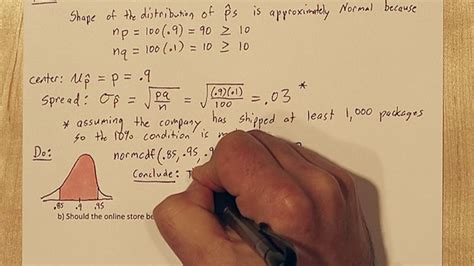 Shape of the distribution of p̂s is approximately Normal because
np = 100(.9) = 90 ≥ 10
nq = 100(.1) = 10 ≥ 10
center: μp̂ = p = .9
Spread: σp̂ = √(pq/n) = √((.9)(.1)/100) = .03 *
* assuming the company has shipped at least 1,000 packages
so the 10% condition is
Do:
normcdf(.85, .95, .9
Conclude:
.85 .9 .95
b) Should the online store